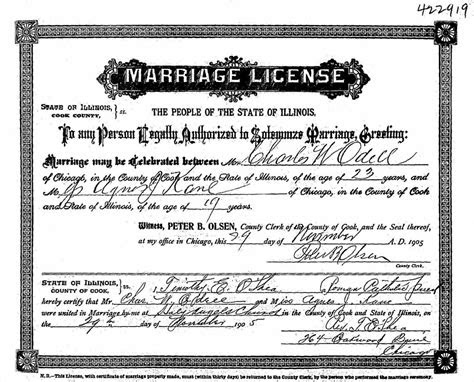 422919
MARRIAGE LICENSE
STATE OF ILLINOIS, COOK COUNTY, } ss. THE PEOPLE OF THE STATE OF ILLINOIS.
To any Person Legally Authorized to Solemnize Marriage, Greeting:
Marriage may be Celebrated between Mr. Charles W Odell
of Chicago, in the County of Cook and the State of Illinois, of the age of 23 years, and
M Agnes J Kane of Chicago, in the County of Cook
and State of Illinois, of the age of 19 years.
Witness, PETER B. OLSEN, County Clerk of the County of Cook, and the Seal thereof,
at my office in Chicago, this 29 day of November A. D. 1905
Peter B. Olsen
County Clerk.
STATE OF ILLINOIS, COUNTY OF COOK. } ss. I, Timothy E. O'Shea a Roman Catholic Priest
hereby certify that Mr. Chas. W. Odell and Miss Agnes J. Kane
were united in Marriage by me at Holy Angels Church in the County of Cook and State of Illinois, on the
29th day of November 1905
Rev. T. E. O'Shea
264 Oakwood
Chicago
N.B.—This License, with certificate of marriage properly made, must (within thirty days) be returned to the County Clerk, by the person who performed the marriage ceremony.